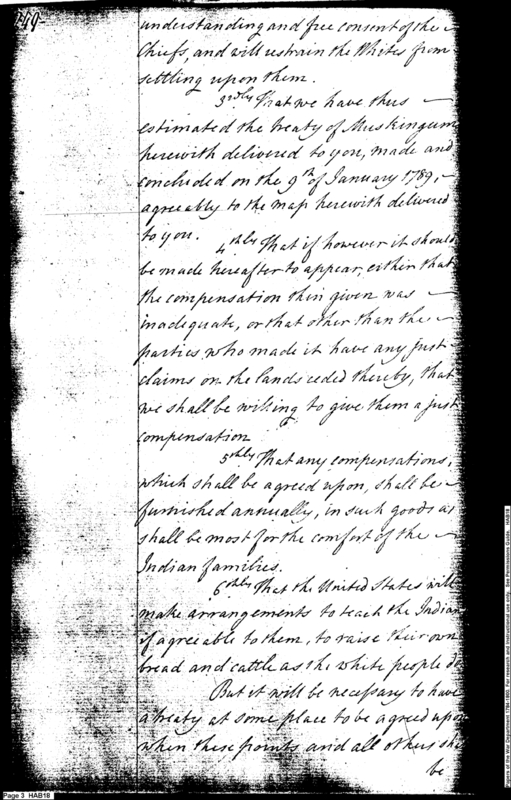 149-
understanding and free consent of the
Chiefs, and will restrain the Whites from
settling upon them.
3rdly That we have thus
estimated the treaty of Muskingum
herewith delivered to you, made and
concluded on the 9th of January 1789,
agreeably to the map herewith delivered
to you.
4thly That if however it should
be made hereafter to appear, either that
the compensation then given was
inadequate, or that other than the
parties, who made it have any just
claims on the lands ceded thereby, that
we shall be willing to give them a just
compensation
5thly That any compensations,
which shall be agreed upon, shall be
furnished annually, in such goods as
shall be most for the comfort of the
Indian families.
6thly That the United States will
make arrangements to teach the Indians
if agreeable to them, to raise their own
bread and cattle as the white people do
But it will be necessary to have
a treaty at some place to be agreed upon
when these points and all others sha
be
Page 3 HAB18
Papers of the War Department 1784-1800. For research and classroom use only. See Permissions Guide. HAB18